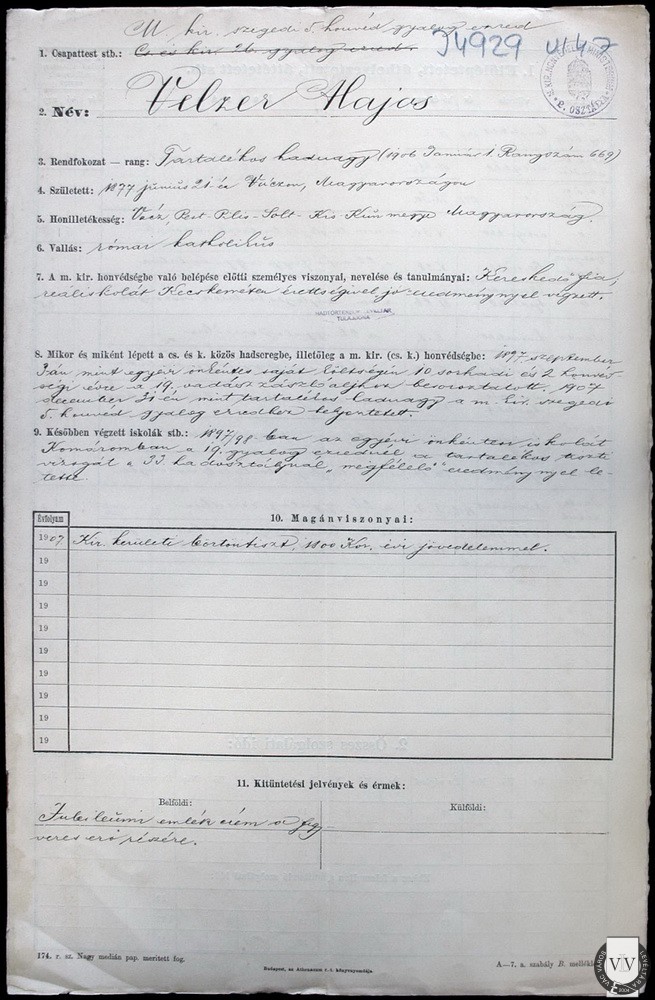 M. kir. szegedi 5. honvéd gyalog ezred
1. Csapattest stb.: Cs. és kir. 26. gyalog ezred.
34929 VI 47
2. OSZTÁLYA
2. Név: Velzer Hajos
3. Rendfokozat — rang: Tartalékos hadnagy (1906 Január 1. Rangszám 669)
4. Született: 1877 június 21-én Váczon, Magyarországon
5. Honilletékesség: Vácz, Pest-Pilis-Solt-Kis-Kun megye Magyarország.
6. Vallás: római katholikus
7. A m. kir. honvédségbe való belépése előtti személyes viszonyai, nevelése és tanulmányai: Kereskedő fia,
reáliskolát Kecskeméten érettségivel jó eredménynyel végzett.
8. Mikor és miként lépett a cs. és k. közös hadseregbe, illetőleg a m. kir. (cs. k.) honvédségbe: 1897 szeptember
mint egyévi önkéntes saját költségén 10 sorhadi és 2 honvéd-
ségi évre a 19. vadász zászlóaljhoz besoroztatott, 1907
december 31-én mint tartalékos hadnagy a m. kir. szegedi
5. honvéd gyalog ezredhez
9. Későbben végzett iskolák stb.: 1897/98-ban az egyévi önkéntesi iskolát
Komáromban a 19. gyalog ezrednél a tartalékos tiszti
vizsgát a 33. hadosztálynál "megfelelő" eredménynyel le-
tette.
Évfolyam
10. Magánviszonyai:
1907 Kir. kerületi börtöntiszt, 1800 Kor. évi jövedelemmel.
19
19
19
19
19
19
19
19
19
11. Kitüntetési jelvények és érmek:
Belföldi:
Külföldi:
Jubileumi emlék érem a fegy-
veres erő részére.
174. r. sz. Nagy medián pap. merített fog.
Budapest, az Athenaeum r. t. könyvnyomdája.
A—7. a. szabály B. mellékl